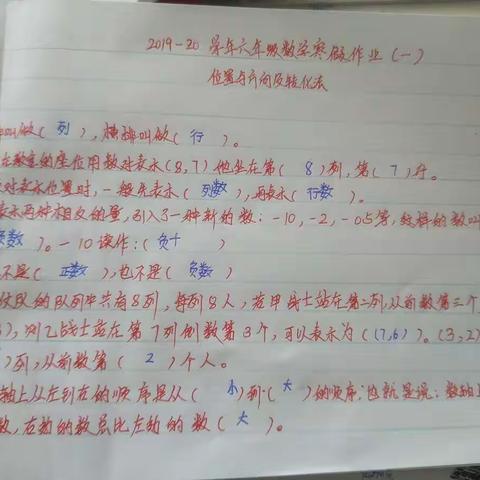 2019-20 学年六年级数学寒假作业 (一)
位置与方向及转化法
叫做( 列 ), 横排叫做( 行 )。
在教室的座位用数对表示(8,7) 他坐在第( 8 )列, 第( 7 )行。
对表示位置时, 一般先表示( 列数 ), 再表示( 行数 )。
表示两种相反的量, 引入了一种新的数: -10, -2, -0.5等, 这样的数叫
负数 )。-10读作: (负十 )
不是( 正数 ), 也不是( 负数 )
队的队列中共有8列, 每列8人, 若甲战士站在第二列, 从前数第三个
), 则乙战士站在第7列倒数第3个, 可以表示为( (7,6) )。(3,2)
)列, 从前数第( 2 )个人。
轴上从左到右的顺序是从( 小 )到( 大 )的顺序, 也就是说: 数轴
数, 右边的数总比左边的数( 大 )。